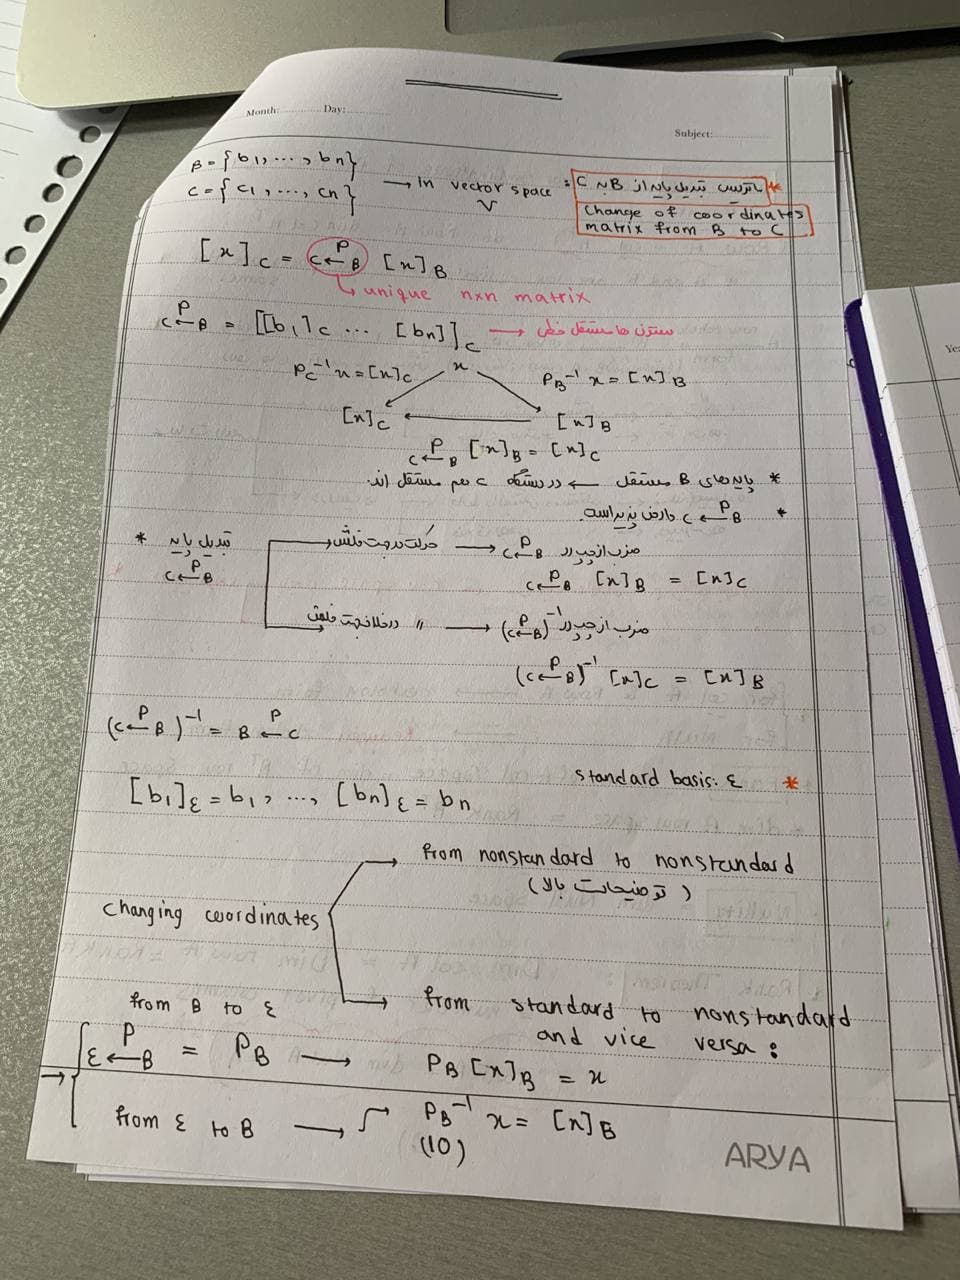 Month: Day:
Subject:
B = {b1, ..., bn}
C = {c1, ..., cn} → In vector space V : ماتریس تبدیل پایه از B به C *
Change of coordinates matrix from B to C
[x]C = P C←B [x]B
↳ unique n×n matrix
P C←B = [[b1]C ... [bn]]C → ستون ها مستقل خطی
PC⁻¹ x = [x]C x PB⁻¹ x = [x]B
[x]C ← [x]B
P C←B [x]B = [x]C
* پایه‌های B مستقل ← در دستگاه C هم مستقل اند.
* P C←B وارون پذیر است.
* تبدیل پایه حرکت در جهت فلش → P C←B ضرب از چپ در
P C←B
P C←B [x]B = [x]C
〃 در خلاف جهت فلش → (P C←B)⁻¹ ضرب از چپ در
(P C←B)⁻¹ [x]C = [x]B
(P C←B)⁻¹ = P B←C
standard basis: ε *
[b1]ε = b1, ..., [bn]ε = bn
from nonstandard to nonstandard
(توضیحات بالا)
changing coordinates
from standard to nonstandard and vice versa:
from B to ε
P ε←B = PB → PB [x]B = x
from ε to B → PB⁻¹ x = [x]B
(10)
ARYA